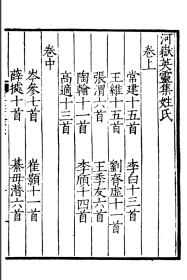 河嶽英靈集姓氏
卷上
常建十五首 李白十三首
王維十五首 劉眘虛十一首
張渭六首 王季友六首
陶翰十一首 李頎十四首
高適十三首
卷中
岑參七首 崔顥十一首
薛據十首 綦毋潛六首